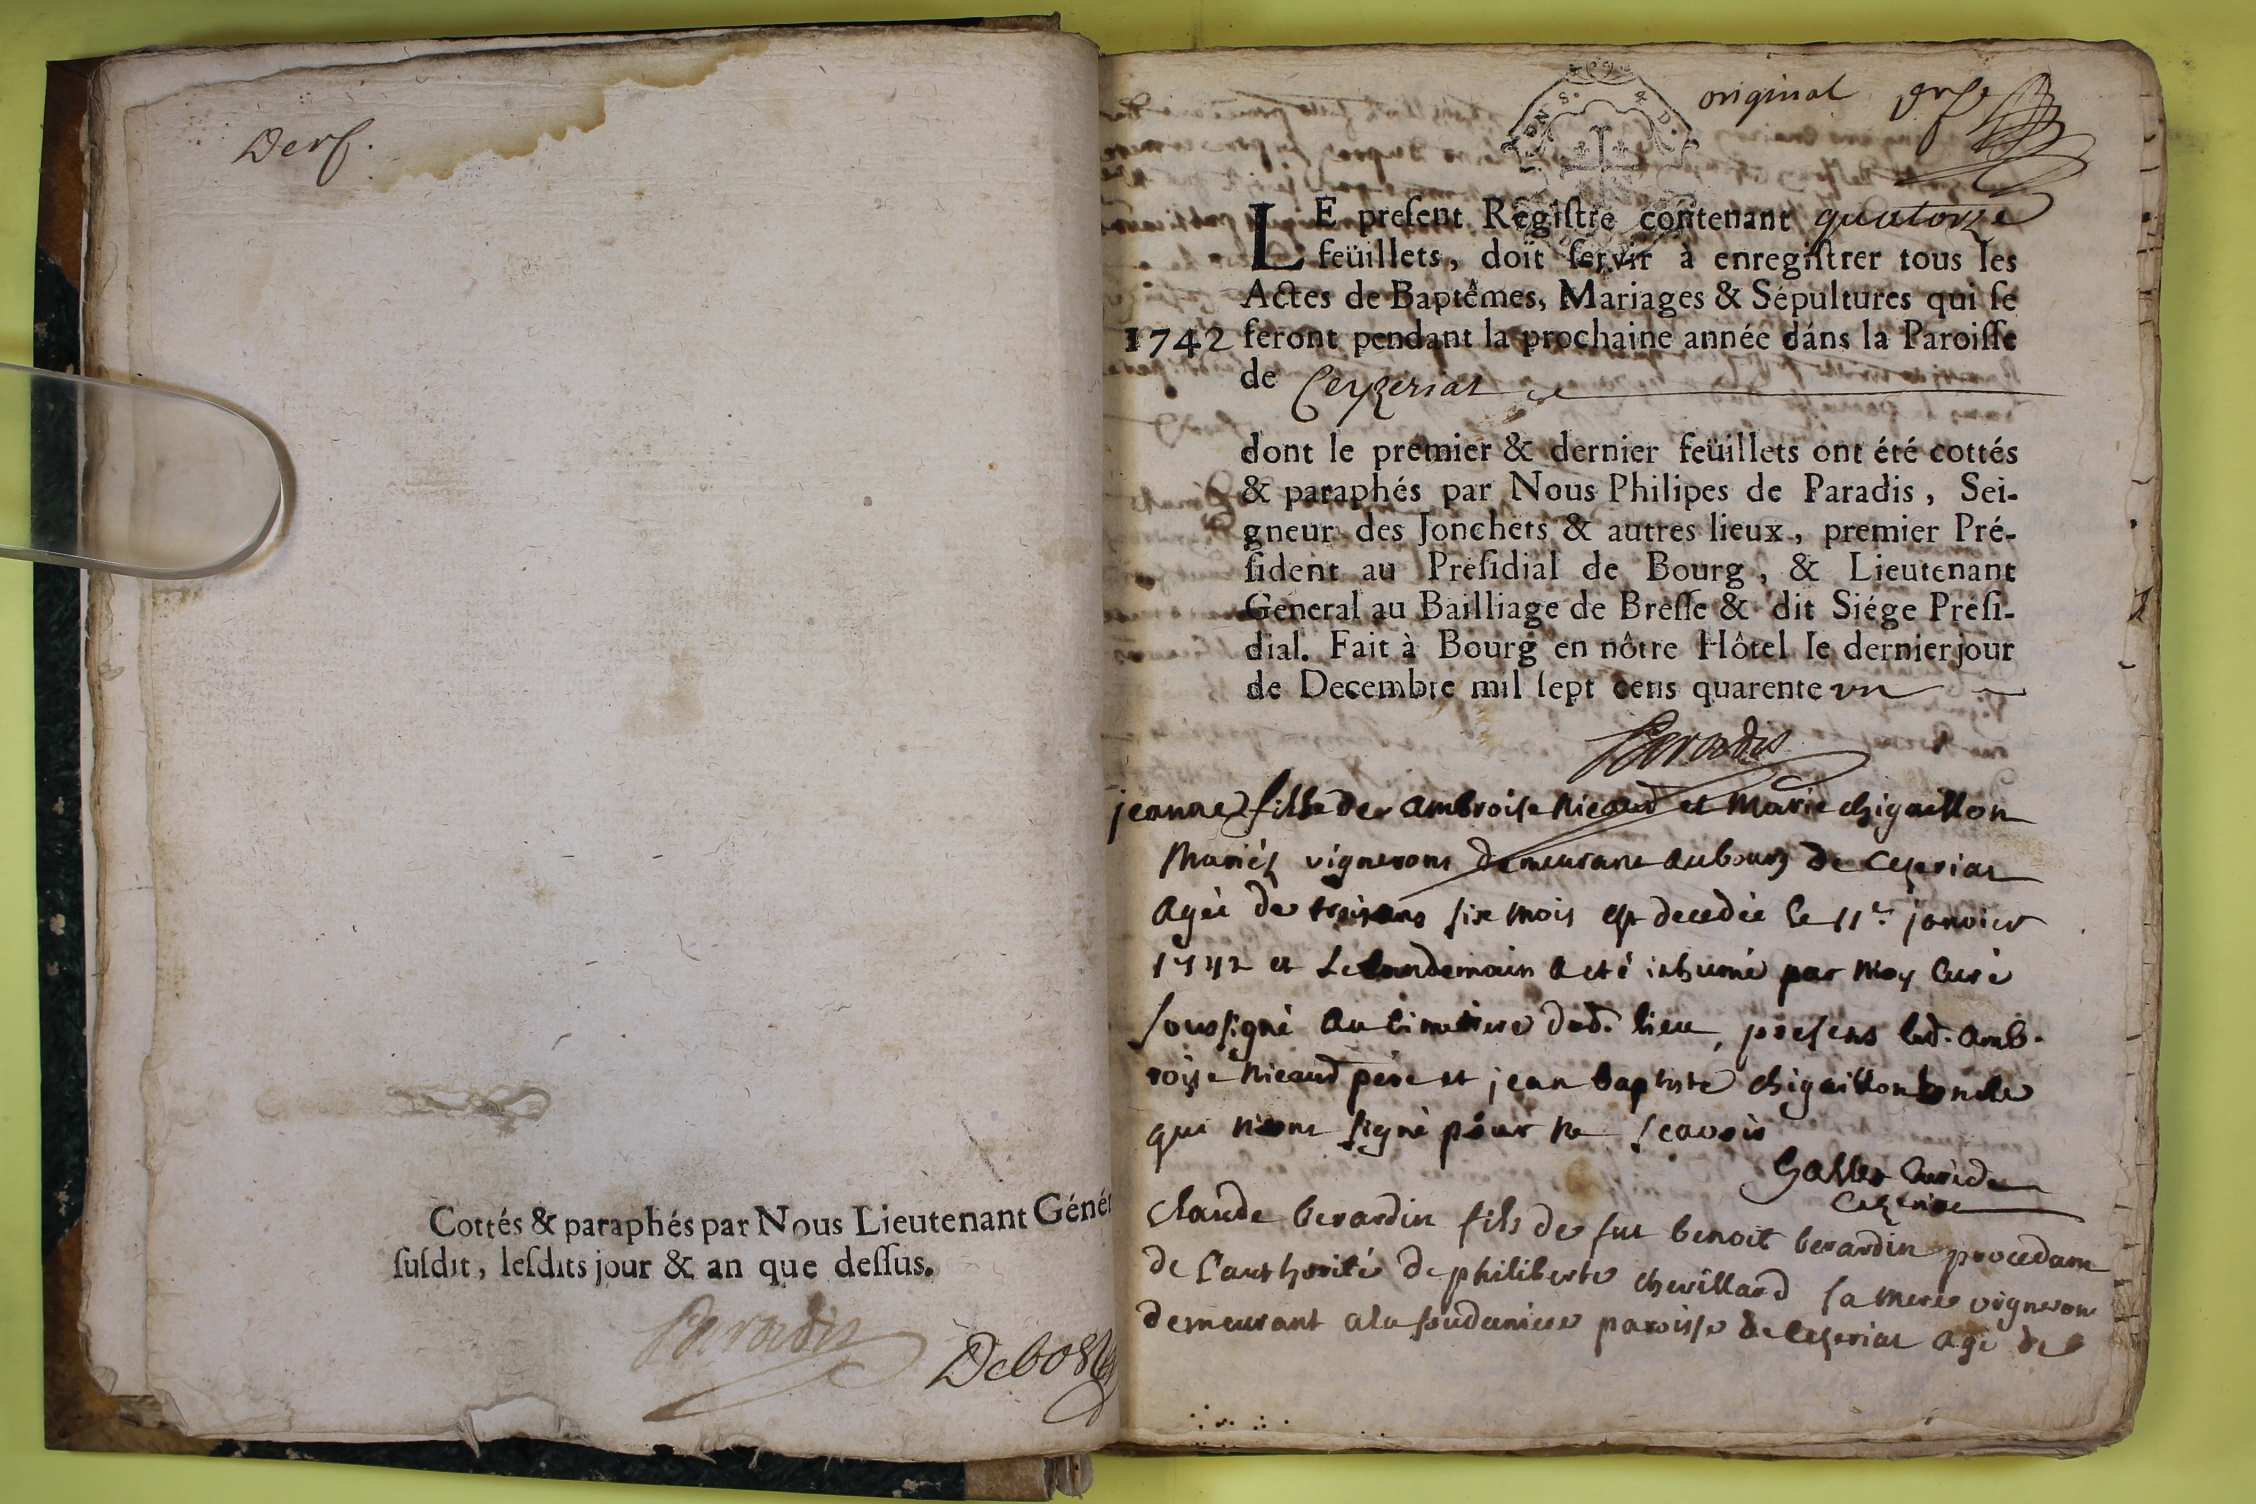 Derf.
Cottés & paraphés par Nous Lieutenant Génér
susdit, lesdits jour & an que dessus.
Paradis
Debost
original
LE present Registre contenant quatorze
feüillets, doit servir à enregistrer tous les
Actes de Baptêmes, Mariages & Sépultures qui se
1742 feront pendant la prochaine année dans la Paroisse
de Ceyzeriat
dont le premier & dernier feüillets ont été cottés
& paraphés par Nous Philipes de Paradis, Sei-
gneur des Jonchets & autres lieux, premier Pré-
sident au Présidial de Bourg, & Lieutenant
General au Bailliage de Bresse & dit Siége Présî-
dial. Fait à Bourg en nôtre Hôtel le dernier jour
de Decembre mil sept cens quarente un
Paradis
jeanne fille de ambroise Nicaud et Marie chigaillon
Mariéz vignerons demeurant au bourg de Ceseriat
agée de trois ans six mois est decedée le 11e janvier
1742 et Le landemain a eté inhumé par Moy Curé
soussigné au cimetiere dud. lieu, presens led. amb-
roise Nicaud pere et jean baptiste chigaillon oncle
qui n'ont signé pour ne scavoir
Curé de
Ceseriat
Claude berardin fils de feu benoit berardin procedant
de l'authorité de philiberte chevillard sa mere vigneron
demeurant a la soudaniere paroisse de Ceseriat agé de